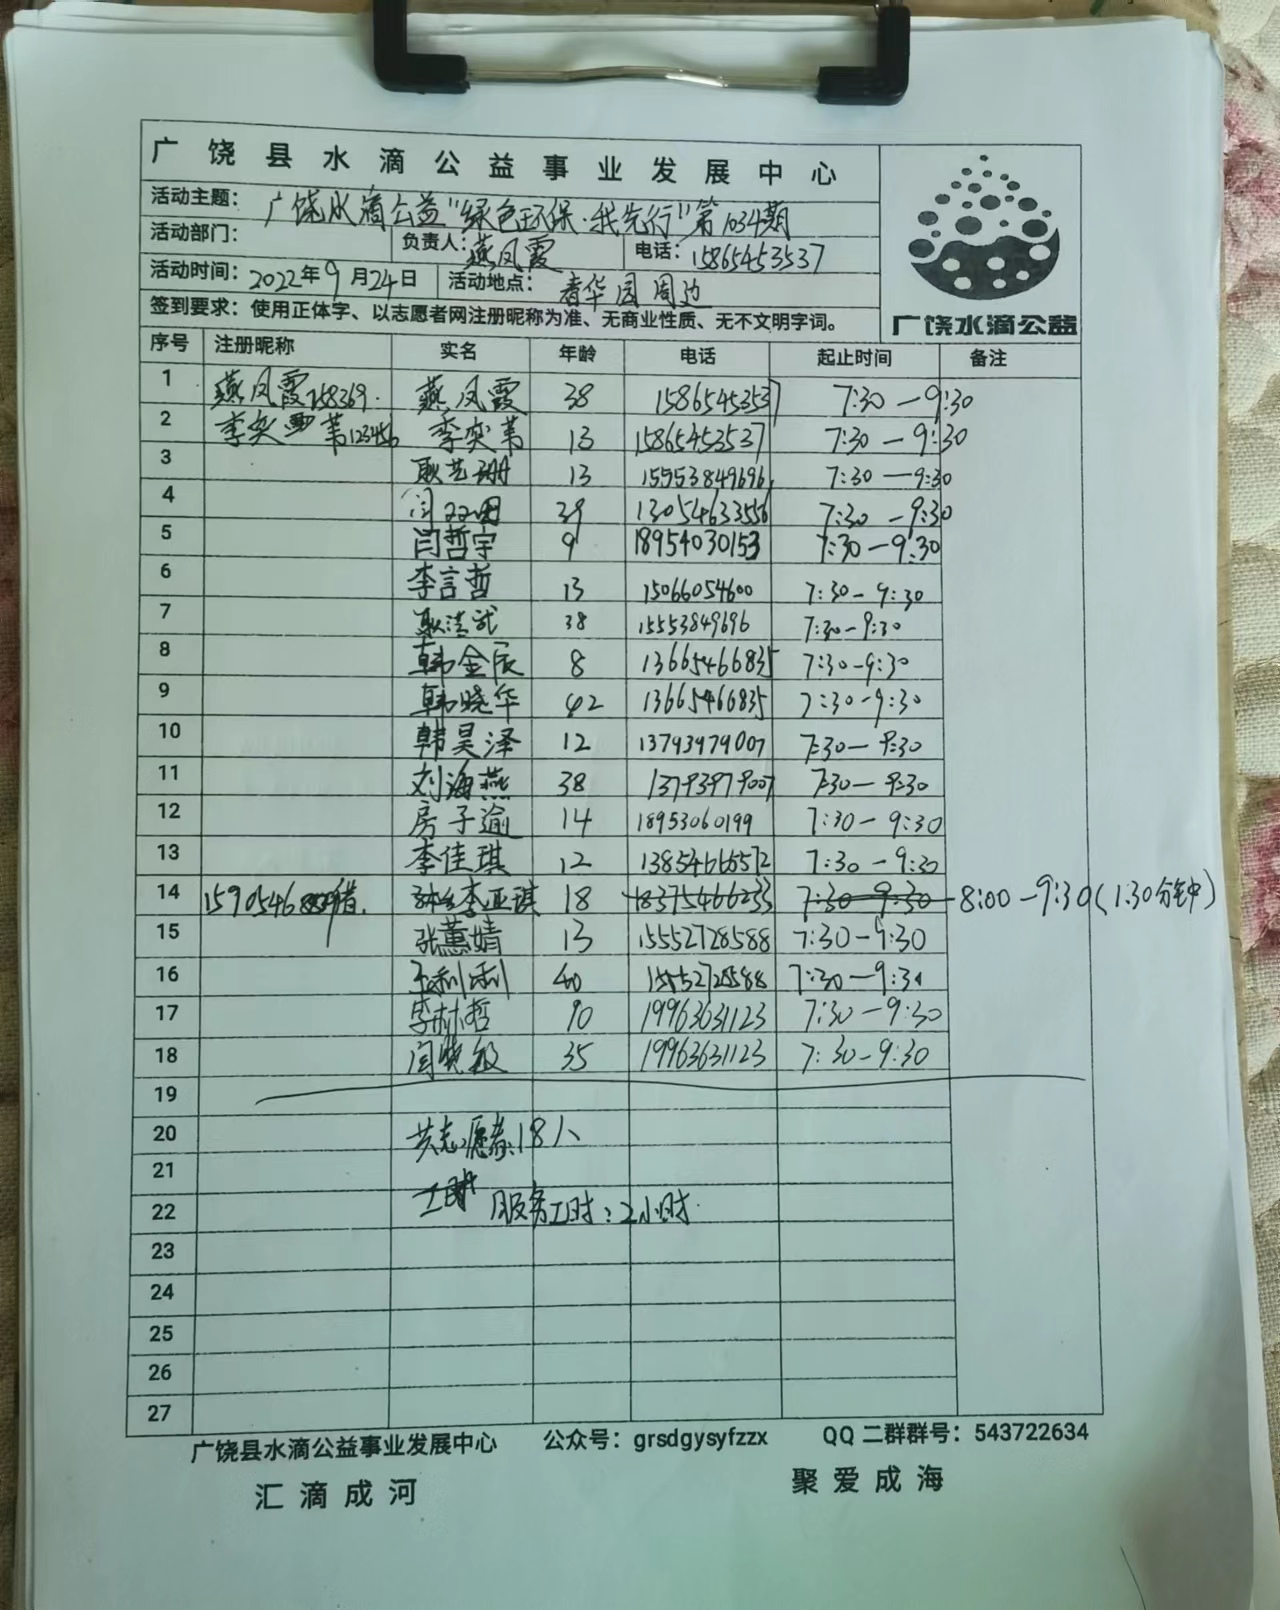 广饶县水滴公益事业发展中心
活动主题：广饶水滴公益“绿色环保·我先行”第1034期
活动部门： 负责人：燕凤霞 电话：15865453537
活动时间：2022年9月24日 活动地点：春华园周边
签到要求：使用正体字、以志愿者网注册昵称为准、无商业性质、无不文明字词。
广饶水滴公益
序号 注册昵称 实名 年龄 电话 起止时间 备注
1 燕凤霞158369. 燕凤霞 38 15865453537 7:30-9:30
2 李奕 第123456 李奕第 13 15865453537 7:30-9:30
3 耿艺珊 13 15553849696 7:30-9:30
4 闫 39 13054633556 7:30-9:30
5 闫哲宇 9 18954030153 7:30-9:30
6 李言哲 13 15066054600 7:30-9:30
7 耿 38 15553849696 7:30-9:30
8 韩金辰 8 13665466835 7:30-9:30
9 韩晓华 42 13665466835 7:30-9:30
10 韩昊泽 12 13793979007 7:30-9:30
11 刘海燕 38 13793979007 7:30-9:30
12 房子逾 14 18953060199 7:30-9:30
13 李佳琪 12 13854666572 7:30-9:30
14 1590546 李亚琪 18 18375466233 7:30-9:30 8:00-9:30(1:30分钟)
15 张蕙婧 13 15552728588 7:30-9:30
16 王利利 40 15552728588 7:30-9:30
17 李林哲 10 19963631123 7:30-9:30
18 闫晓敏 35 19963631123 7:30-9:30
19
20 共志愿者:18人
21
22 工时 服务工时:2小时.
23
24
25
26
27
广饶县水滴公益事业发展中心 公众号：grsdgysyfzzx QQ二群群号：543722634
汇滴成河 聚爱成海